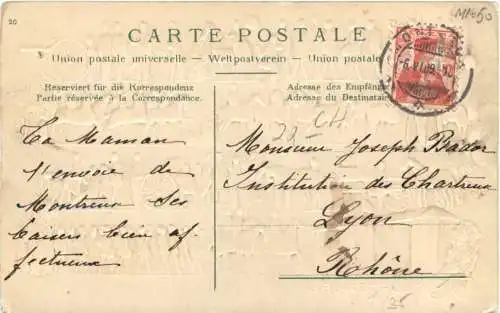 20
M1650
CARTE POSTALE
Union postale universelle — Weltpostverein — Union postale
Reserviert für die Korrespondenz
Partie réservée à la Correspondance.
Adresse des Empfäng
Adresse du Destinatai
20 CH
Ta Maman
t'envoie de
Montreux ses
baisers bien af
fectueux
Monsieur Joseph Bador
Institution des Chartreux
Lyon
Rhône